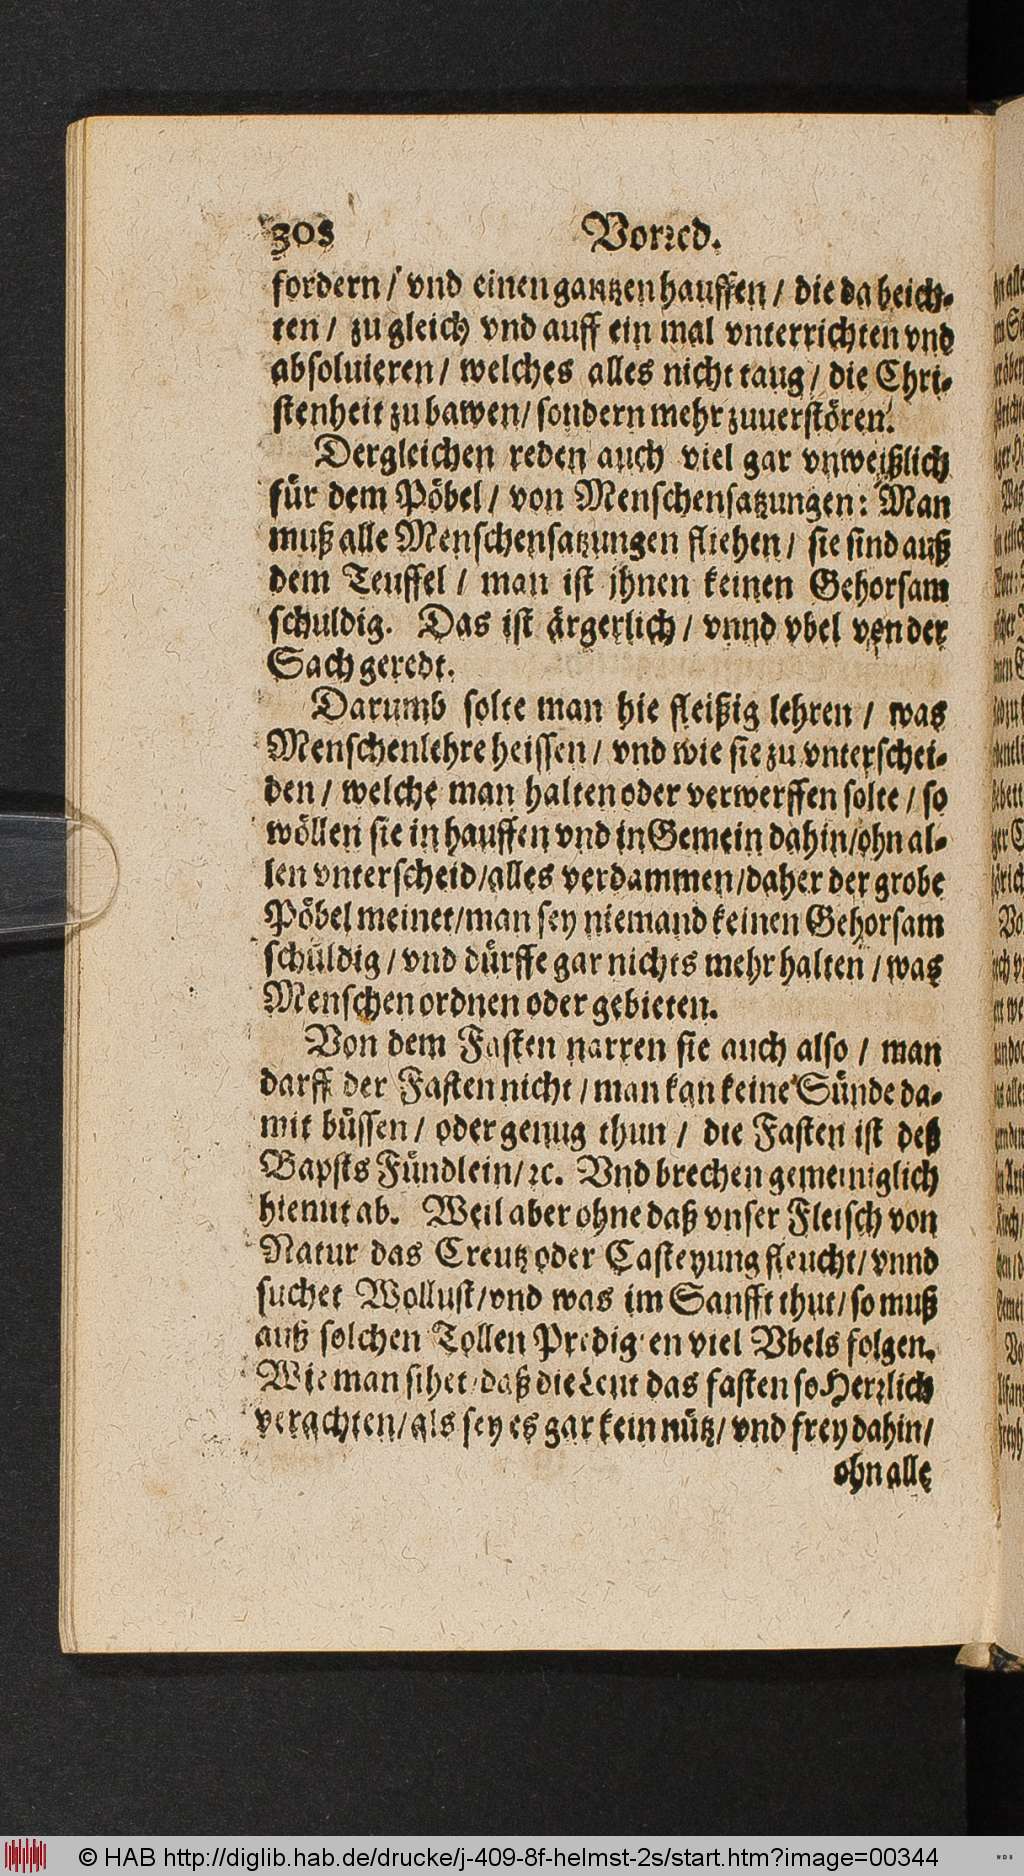 308 Vorred.
fordern / vnd einen gantzen hauffen / die da beich-
ten / zu gleich vnd auff ein mal vnterrichten vnd
absoluieren / welches alles nicht taug / die Chri-
stenheit zu bawen / sondern mehr zuuerstören.
Dergleichen reden auch viel gar vnweißlich
für dem Pöbel / von Menschensatzungen: Man
muß alle Menschensatzungen fliehen / sie sind auß
dem Teuffel / man ist jhnen keinen Gehorsam
schuldig. Das ist ärgerlich / vnnd vbel von der
Sach geredt.
Darumb solte man hie fleißig lehren / was
Menschenlehre heissen / vnd wie sie zu vnterschei-
den / welche man halten oder verwerffen solte / so
wöllen sie in hauffen vnd in Gemein dahin / ohn al-
len vnterscheid / alles verdammen / daher der grobe
Pöbel meinet / man sey niemand keinen Gehorsam
schüldig / vnd dürffe gar nichts mehr halten / was
Menschen ordnen oder gebieten.
Von dem Fasten narren sie auch also / man
darff der Fasten nicht / man kan keine Sünde da-
mit büssen / oder genug thun / die Fasten ist deß
Bapsts Fündlein / ꝛc. Vnd brechen gemeiniglich
hiemit ab. Weil aber ohne daß vnser Fleisch von
Natur das Creutz oder Casteyung fleucht / vnnd
suchet Wollust / vnd was im Sanfft thut / so muß
auß solchen Tollen Predigten viel Vbels folgen.
Wie man sihet / daß die Leut das fasten so Herrlich
verachten / als sey es gar kein nütz / vnd frey dahin /
ohn alle
© HAB http://diglib.hab.de/drucke/j-409-8f-helmst-2s/start.htm?image=00344